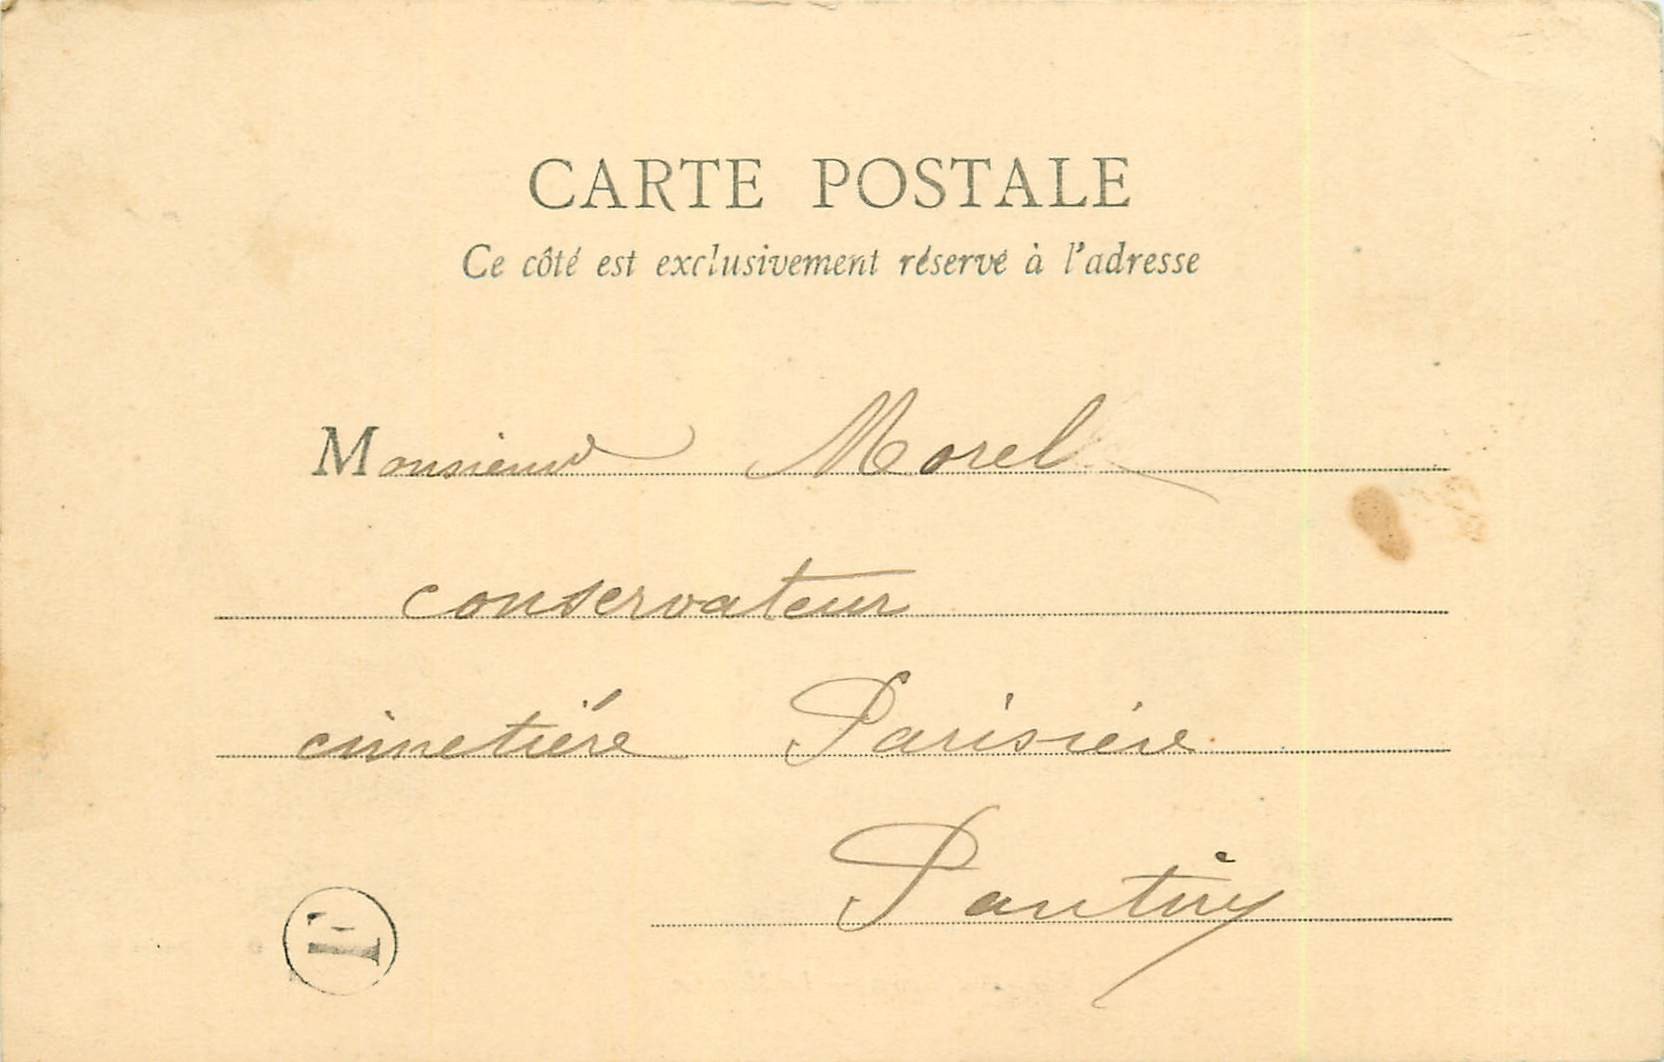 CARTE POSTALE
Ce côté est exclusivement réservé à l'adresse
Monsieur Morel
conservateur
cimetiére Parisiére
Pantiny